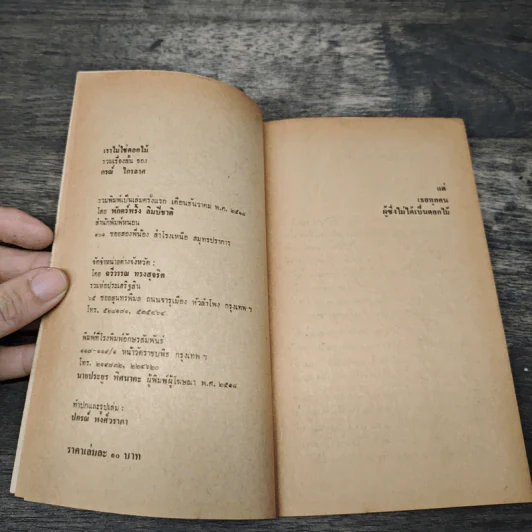 เราไม่ใช่ดอกไม้
รวมเรื่องสั้น ของ
กรณ์ ไกรลาศ
รวมพิมพ์เป็นเล่มครั้งแรก เดือนธันวาคม พ.ศ. ๒๕๑๘
โดย
สำนักพิมพ์หนอน
ซอยสองพี่น้อง สำโรงเหนือ สมุทรปราการ
จัดจำหน่ายต่างจังหวัด :
โดย ฉวีวรรณ ทรงสุจริต
รวมห่อประเสริฐสิน
๖๕ ซอยสุนทรพิมล ถนนจารุเมือง หัวลำโพง กรุงเทพ ฯ
โทร.
พิมพ์ที่โรงพิมพ์อักษรสัมพันธ์
หน้าวัดราชบพิธ กรุงเทพ ฯ
โทร.
นายประยูร พิศนาคะ ผู้พิมพ์ผู้โฆษณา พ.ศ. ๒๕๑๘
ทำปกและรูปเล่ม :
ปกรณ์ พงศ์วราภา
ราคาเล่มละ ๑๐ บาท
แด่
เธอทุกคน
ผู้ซึ่งไม่ได้เป็นดอกไม้